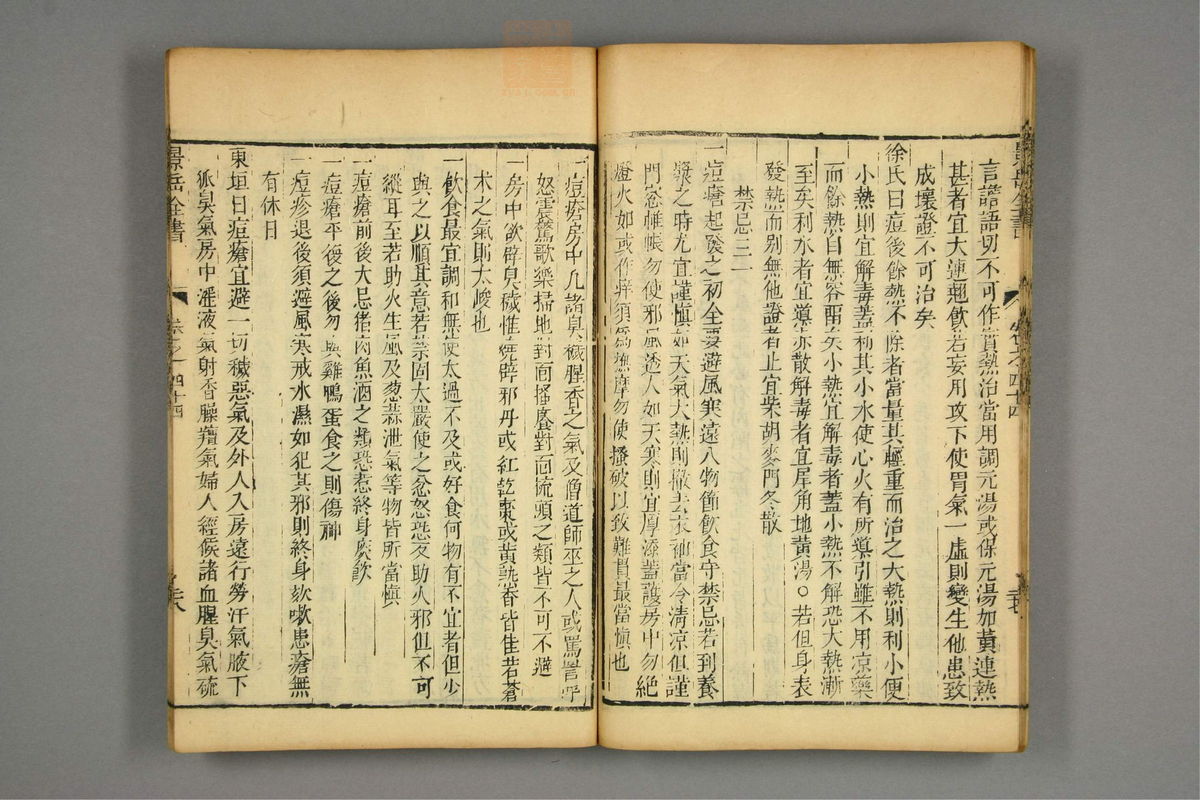 言譫語切不可作實熱治當用調元湯或保元湯加黃連熱
甚者宜大連翹飲若妄用攻下使胃氣一虛則變生他患致
成壞證不可治矣
徐氏曰痘後餘熱不除者當量其輕重而治之大熱則利小便
小熱則宜解毒蓋利其小水使心火有所導引雖不用凉藥
而餘熱自無容留矣小熱宜解毒者蓋小熱不解恐大熱漸
至矣利水者宜導赤散解毒者宜犀角地黃湯○若但身表
發熱而別無他證者止宜柴胡麥門冬散
禁忌三一
一痘瘡起發之初全要避風寒遠人物節飲食守禁忌若到養
漿之時尤宜謹愼如天氣大熱則撤去衣被當令清凉但謹
門窓帷帳勿使邪風透人如天寒則宜厚添蓋護房中勿絕
燈火如或作癢須為撫摩勿使搔破以致難貫最當愼也
景岳全書
卷之四十四
一痘瘡房中凡諸臭穢腥香之氣及僧道師巫之人或罵詈呼
怒震驚歌樂掃地對面搔癢對面梳頭之類皆不可不避
一房中欲辟臭穢惟燒辟邪丹或紅乾棗或黃熟香皆佳若蒼
朮之氣則太峻也
一飲食最宜調和無使太過不及或好食何物有不宜者但少
與之以順其意若禁固太嚴使之忿怒恐反助火邪但不可
縱耳至若助火生風及葱蒜泄氣等物皆所當愼
一痘瘡前後大忌猪肉魚酒之類恐惹終身痰飲
一痘瘡平復之後勿與雞鴨蛋食之則傷神
一痘疹退後須避風寒戒水濕如犯其邪則終身欬嗽患瘡無
有休日
東垣曰痘瘡宜避一切穢惡氣及外人入房遠行勞汗氣腋下
狐臭氣房中淫液氣射香臊羶氣婦人經候諸血腥臭氣硫
景岳全書
卷之四十四